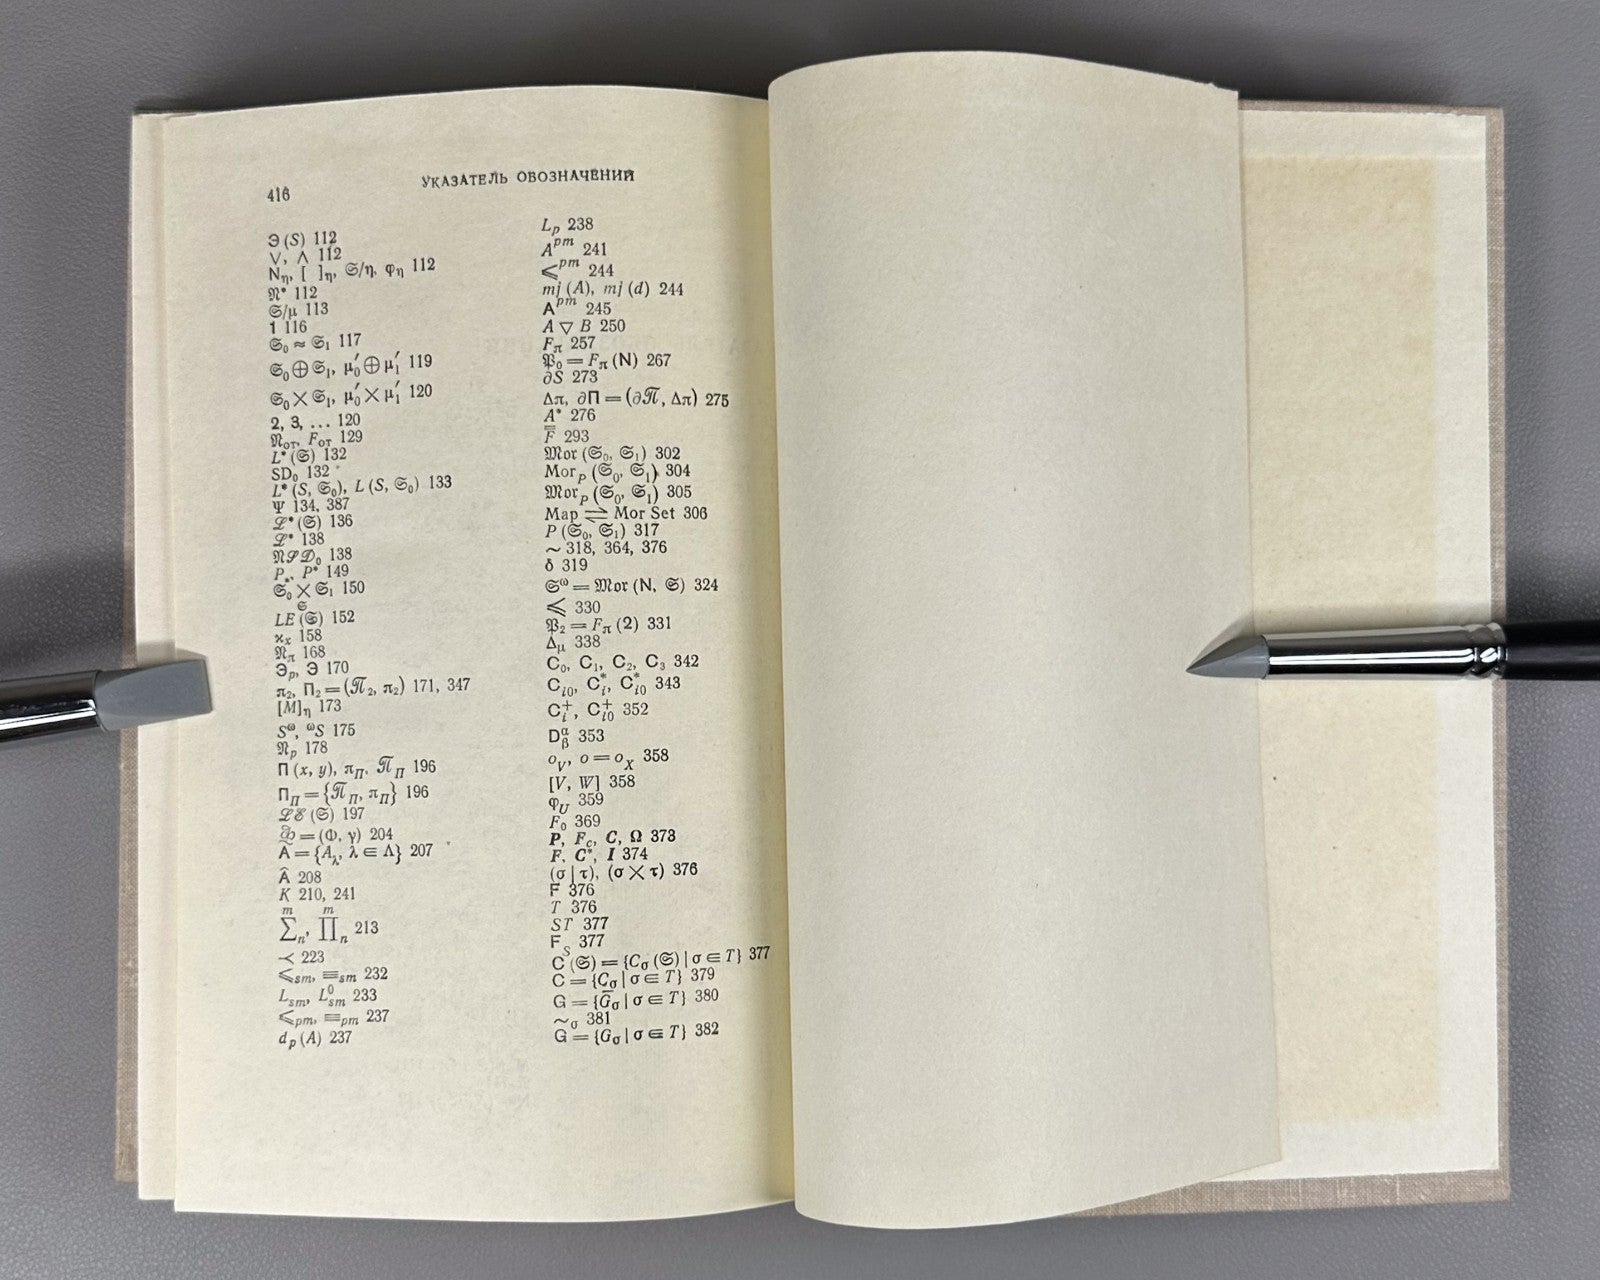 416
УКАЗАТЕЛЬ ОБОЗНАЧЕНИЙ
Э (S) 112
∨, ∧ 112
N_η, [ ]_η, 𝔖/η, φ_η 112
𝔑* 112
𝔖/μ 113
1 116
𝔖₀ ≈ 𝔖₁ 117
𝔖₀ ⊕ 𝔖₁, μ₀′ ⊕ μ₁′ 119
𝔖₀ × 𝔖₁, μ₀′ × μ₁′ 120
2, 3, ... 120
𝔑_от, F_от 129
L* (𝔖) 132
SD₀ 132
L* (S, 𝔖₀), L (S, 𝔖₀) 133
Ψ 134, 387
ℒ* (𝔖) 136
ℒ* 138
𝔑𝒮𝒟₀ 138
P_*, P* 149
𝔖₀ ×_𝔖 𝔖₁ 150
LE (𝔖) 152
ϰ_x 158
𝔑_π 168
Э_p, Э 170
π₂, Π₂ = (𝒯l₂, π₂) 171, 347
[M]_η 173
S^ω, ^ωS 175
𝔑_p 178
Π (x, y), π_Π, 𝒯l_Π 196
Π_Π = {𝒯l_Π, π_Π} 196
ℒℰ (𝔖) 197
= (Φ, γ) 204
Ã = {A_λ, λ ∈ Λ} 207
Â 208
K 210, 241
∑_n^m, ∏_n^m 213
≺ 223
⩽_sm, ≡_sm 232
L_sm, L⁰_sm 233
⩽_pm, ≡_pm 237
d_p (A) 237
L_p 238
A^pm 241
⩽^pm 244
mj (A), mj (d) 244
A^pm 245
A ▽ B 250
F_π 257
𝔓₀ = F_π (N) 267
∂S 273
Δπ, ∂Π = (∂𝒯l, Δπ) 275
A* 276
F̿ 293
𝔐𝔬𝔯 (𝔖₀, 𝔖₁) 302
Mor_P (𝔖₀, 𝔖₁) 304
𝔐𝔬𝔯_P (𝔖₀, 𝔖₁) 305
Map ⇌ Mor Set 306
P (𝔖₀, 𝔖₁) 317
∼ 318, 364, 376
δ 319
𝔖^ω = 𝔐𝔬𝔯 (N, 𝔖) 324
⩽ 330
𝔓₂ = F_π (2) 331
Δ_μ 338
C₀, C₁, C₂, C₃ 342
C_i0, C_i^*, C_i0^* 343
C_i^+, C_i0^+ 352
D_β^α 353
o_V, o = o_X 358
[V, W] 358
φ_U 359
F₀ 369
P, F_c, C, Ω 373
F, C*, I 374
(σ | τ), (σ × τ) 376
F 376
T 376
ST 377
F_S 377
C (𝔖) = {C_σ (𝔖) | σ ∈ T} 377
C = {C_σ | σ ∈ T} 379
G = {G̅_σ | σ ∈ T} 380
∼_σ 381
G = {G_σ | σ ∈ T} 382